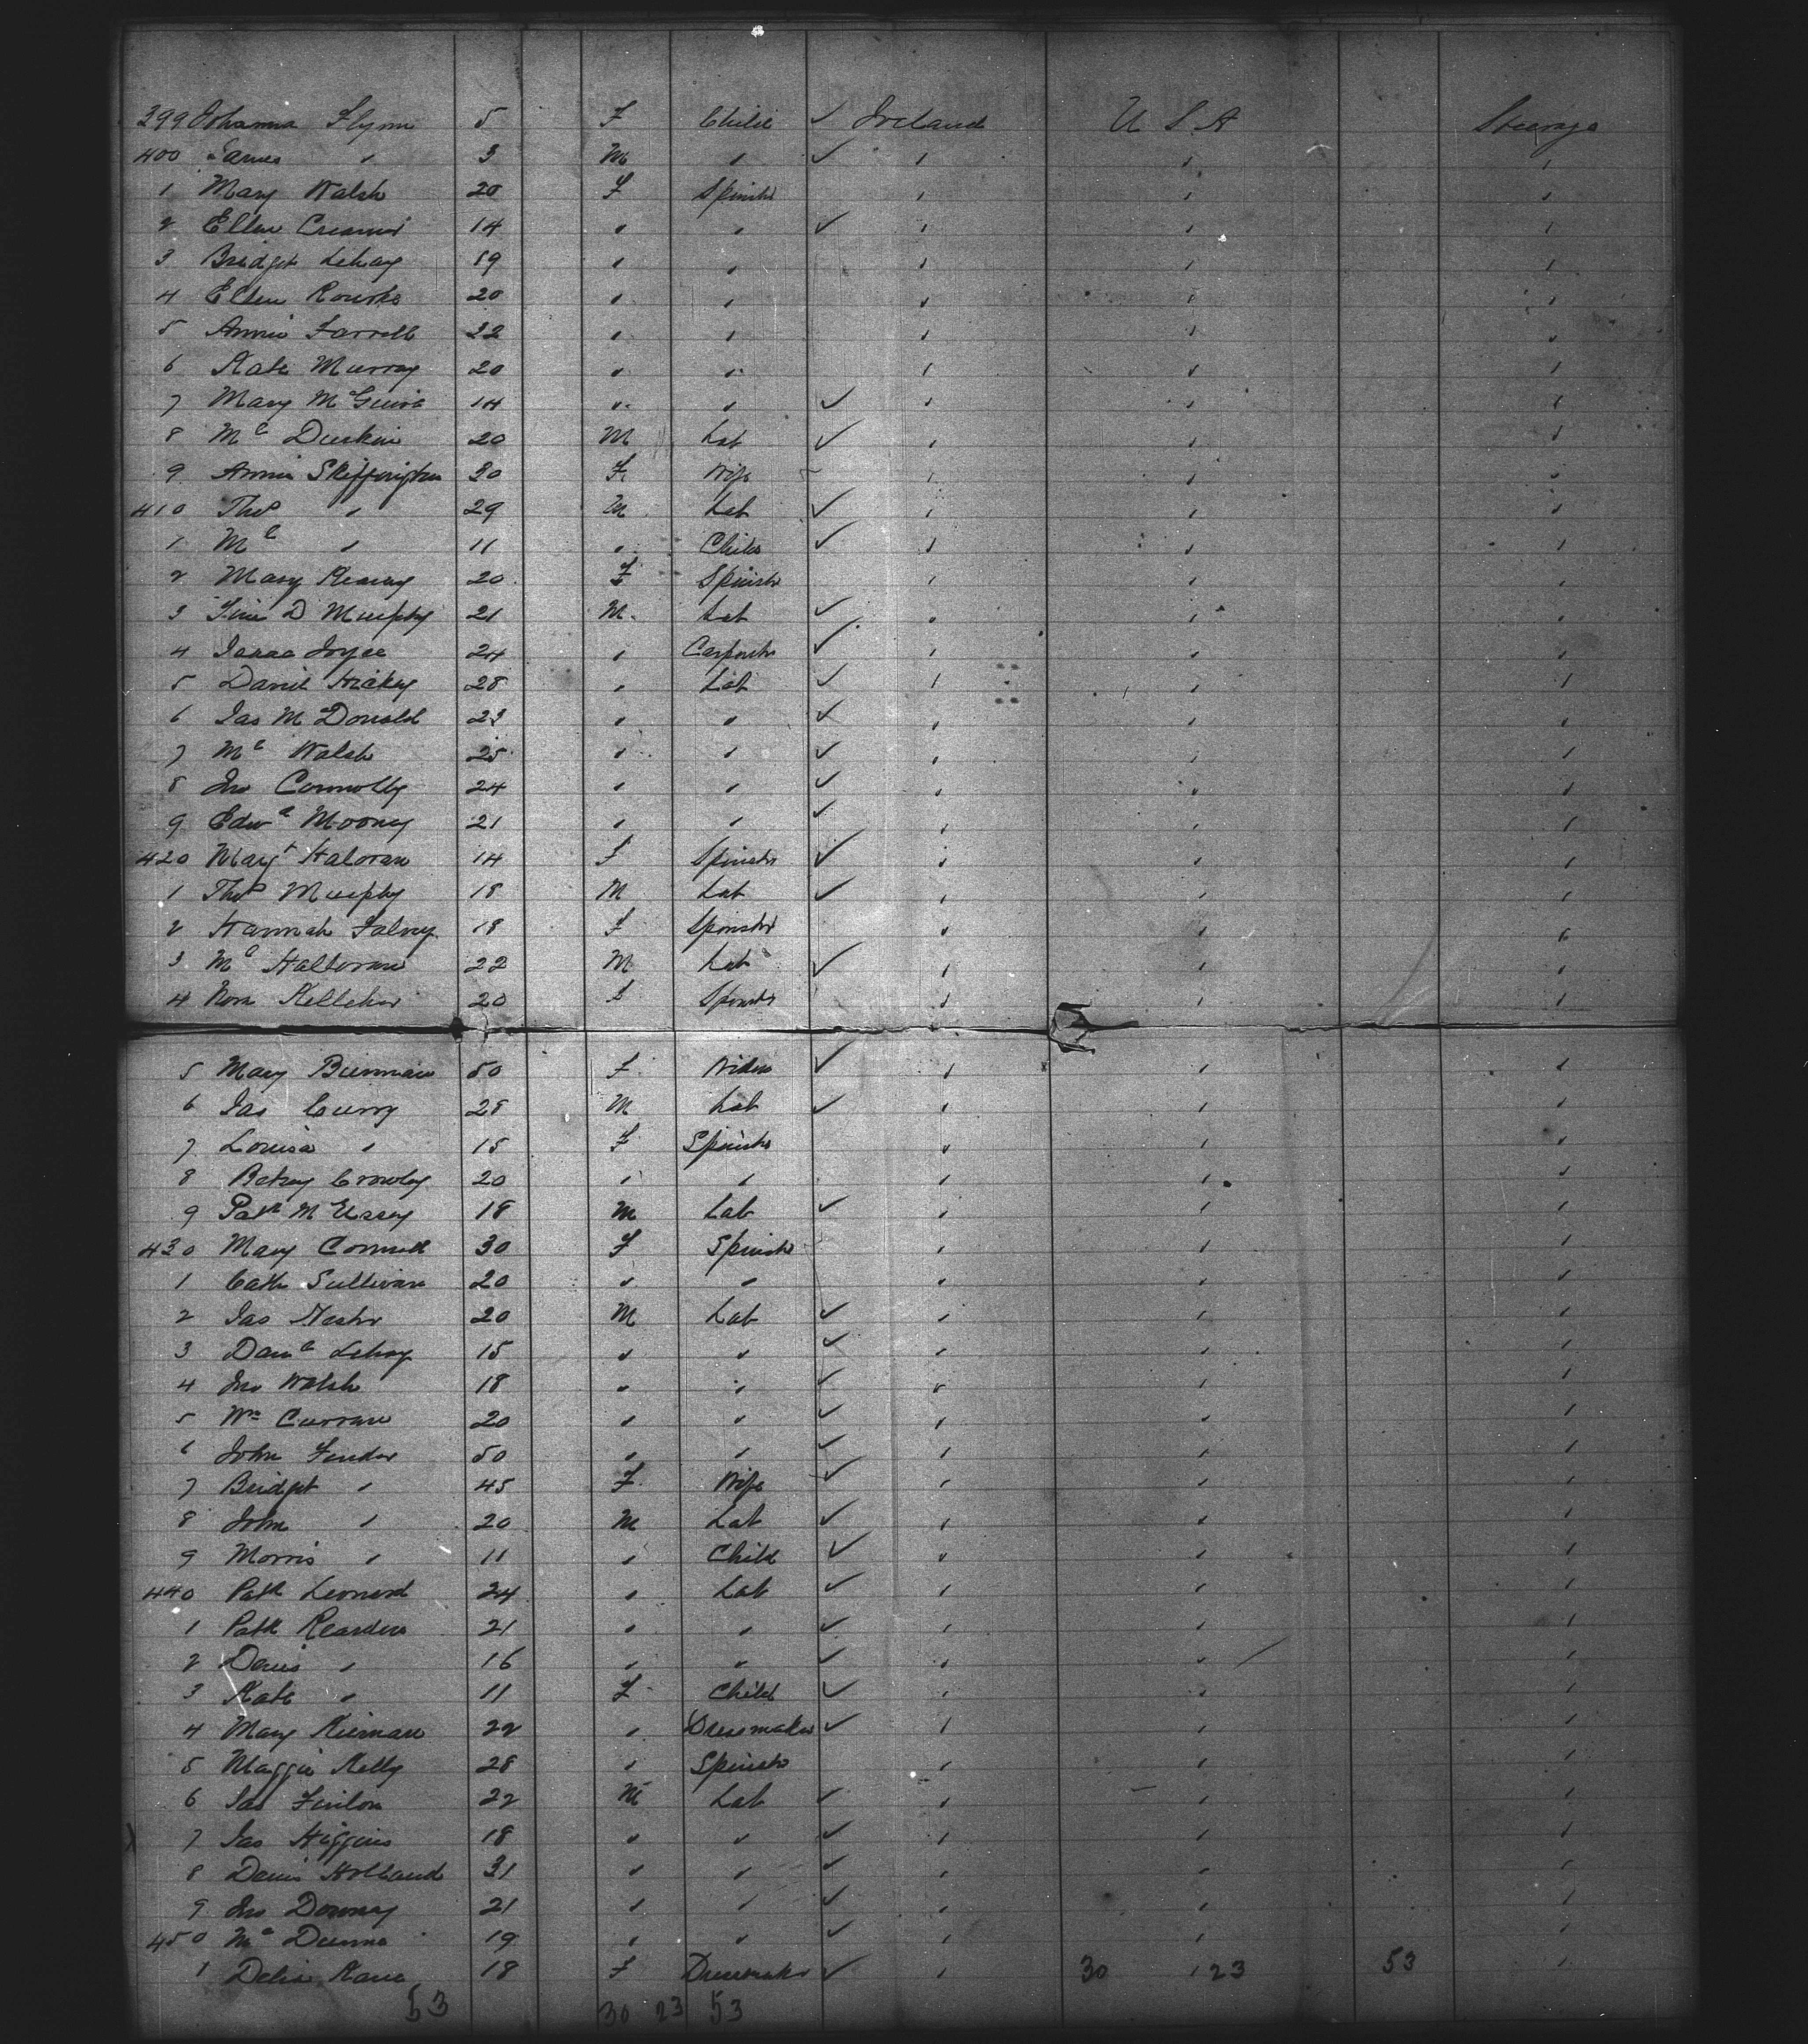 299 Johanna Flynn 5 F Child ✓ Ireland U S A Steerage
400 James " 3 M " ✓ " " "
1 Mary Walsh 20 F Spinstr " " "
2 Ellen Creamer 14 " " ✓ " " "
3 Bridget Lehay 19 " " " " "
4 Ellen Rourke 20 " " " " "
5 Annie Farrell 22 " " " " "
6 Kate Murray 20 " " " " "
7 Mary McGuire 14 " " ✓ " " "
8 Ml Durkin 20 M Lab ✓ " " "
9 Annie Skeffington 30 F Wife " " "
410 Thos " 29 M Lab ✓ " " "
1 Ml " 11 " Child ✓ " " "
2 Mary Kearny 20 F Spinstr " " "
3 Tim D Murphy 21 M Lab ✓ " " "
4 Isaac Joyce 24 " Carpentr ✓ " " "
5 Daniel Hickey 28 " Lab ✓ " " "
6 Jas McDonald 23 " " ✓ " " "
7 Ml Walsh 25 " " ✓ " " "
8 Jno Connolly 24 " " ✓ " " "
9 Edwd Mooney 21 " " ✓ " " "
420 Margt Haloran 14 F Spinstr ✓ " " "
1 Thos Murphy 18 M Lab ✓ " " "
2 Hannah Falvey 18 F Spinstr " " "
3 Ml Halloran 22 M Lab ✓ " " "
4 Nora Kelleher 20 F Spinstr " " "
5 Mary 50 F Widow ✓ " " "
6 Jas Curry 28 M Lab ✓ " " "
7 Louisa " 15 F Spinstr " " "
8 Betsey Crowley 20 " " " " "
9 Patk 18 M Lab ✓ " " "
430 Mary Connell 30 F Spinstr " " "
1 Cath Sullivan 20 " " " " "
2 Jas Nestor 20 M Lab ✓ " " "
3 Danl Lehay 15 " " ✓ " " "
4 Jno Walsh 18 " " ✓ " " "
5 Wm Curran 20 " " ✓ " " "
6 John 50 " " ✓ " " "
7 Bridget " 45 F Wife ✓ " " "
8 John " 20 M Lab ✓ " " "
9 Morris " 11 " Child ✓ " " "
440 Patk Leonard 24 " Lab ✓ " " "
1 Patk Rearden 21 " " ✓ " " "
2 Denis " 16 " " ✓ " " "
3 Kate " 11 F Child ✓ " " "
4 Mary Kiernan 22 " Dressmaker ✓ " " "
5 Maggie Kelly 28 " Spinstr " " "
6 Jas 22 M Lab ✓ " " "
7 Jas Higgins 18 " " ✓ " " "
8 Denis Holland 31 " " ✓ " " "
9 Jno Downey 21 " " ✓ " " "
450 Ml Dunne 19 " " ✓ " " "
1 Delia Kane 18 F Dressmakr ✓ " 30 " 23 53 "
53 30 23 53